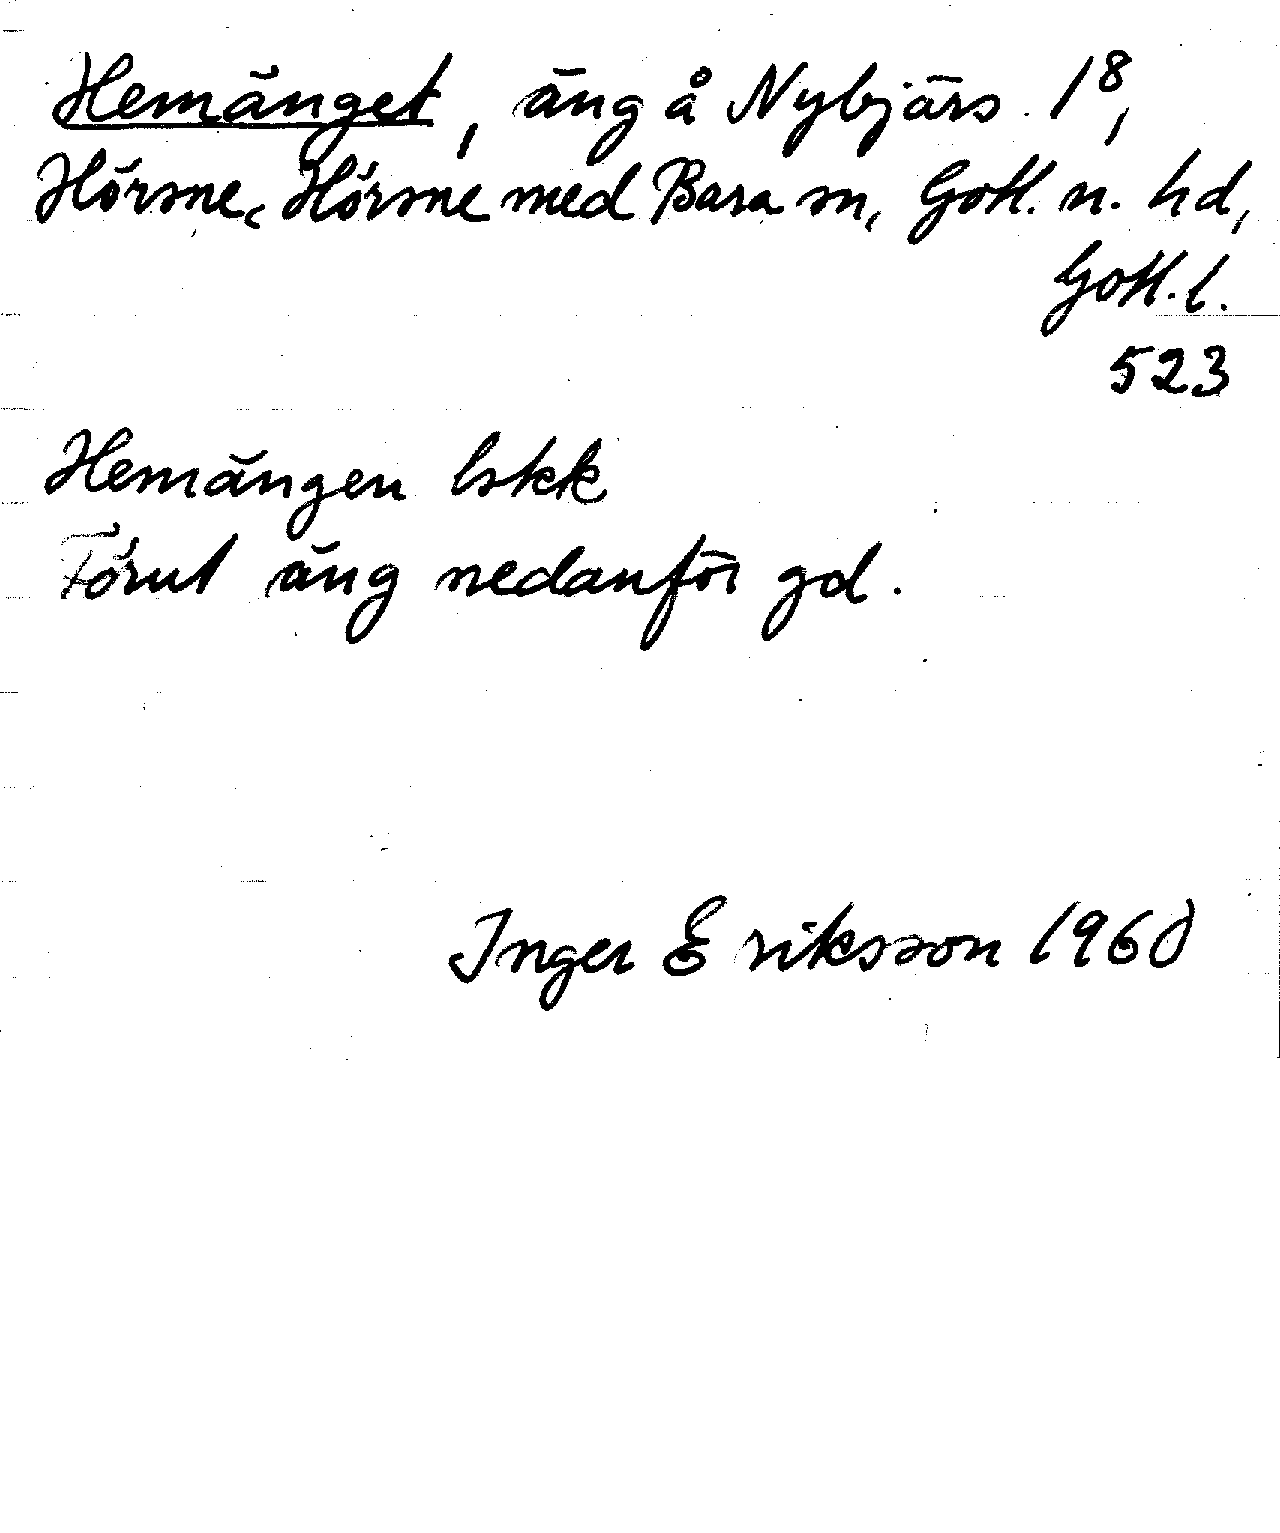 Hemänget, äng å Nybjärs 1⁸,
Hörsne, Hörsne med Bara sn, Gotl. n. hd,
Gotl. l.
523
Hemängen lskk
Förut äng nedanför gd.
Inger Eriksson 1960